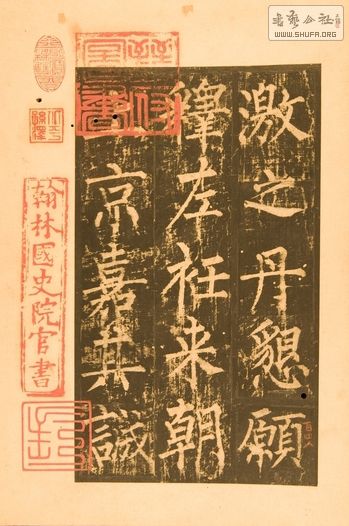 激之丹懇願
釋左衽来朝
京嘉其誠
翰林國史院官書
書藝公社
WWW.SHUFA.ORG